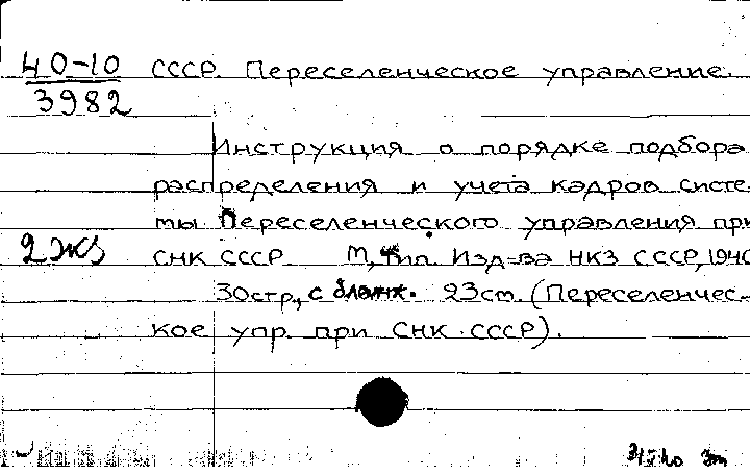 40-10 СССР. Переселенческое управление.
3982
Инструкция о порядке подбора
распределения и учета кадров систе-
мы Переселенческого управления при
2ЖЗ СНК СССР М, тип. Изд-ва НКЗ СССР, 1940
30стр, с бланк. 23см. (Переселенчес-
кое упр. при СНК СССР).